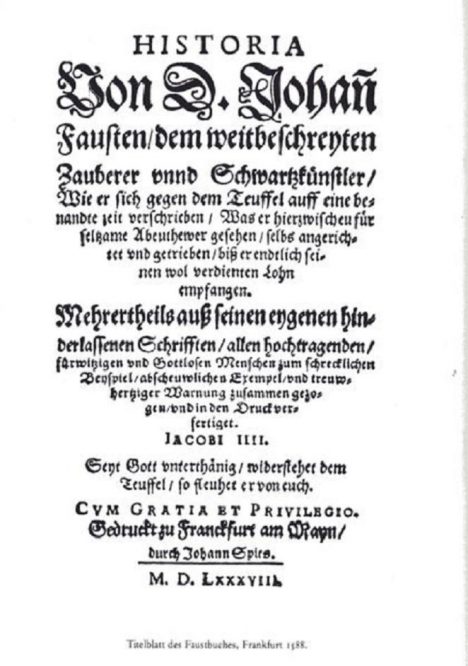 HISTORIA
Von D. Johañ
Fausten/dem weitbeschreyten
Zauberer vnnd Schwartzkünstler/
Wie er sich gegen dem Teuffel auff eine be-
nandte zeit verschrieben/ Was er hierzwischen für
seltzame Abenthewer gesehen/selbs angerich-
tet vnd getrieben/biß er endtlich sei-
nen wol verdienten Lohn
empfangen.
Mehrertheils auß seinen eygenen hin-
derlassenen Schrifften/allen hochtragenden/
fürwitzigen vnd Gottlosen Menschen zum schrecklichen
Beyspiel/abscheuwlichen Exempel/vnd treuw-
hertziger Warnung zusammen gezo-
gen/vnd in den Druck ver-
fertiget.
IACOBI IIII.
Seyt Gott vnterthänig/widerstehet dem
Teuffel/so fleuhet er von euch.
CVM GRATIA ET PRIVILEGIO.
Gedruckt zu Franckfurt am Mayn/
durch Johann Spies.
M. D. LXXXVIII.
Titelblatt des Faustbuches, Frankfurt 1588.